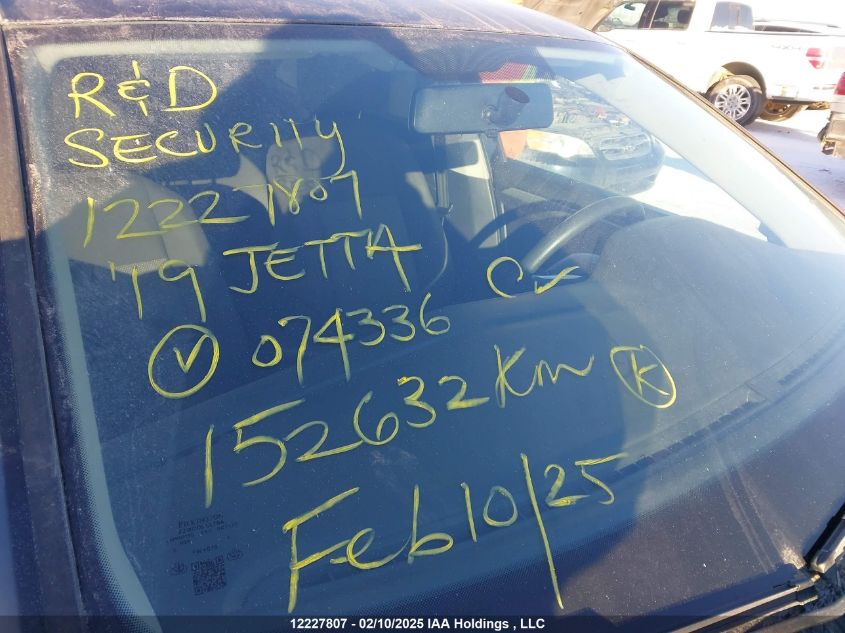 R&D
SECURITY
12227807
'19 JETTA C✓
Ⓥ 074336
152632 Km Ⓚ
Feb 10/25
4X4
12227807 - 02/10/2025 IAA Holdings , LLC